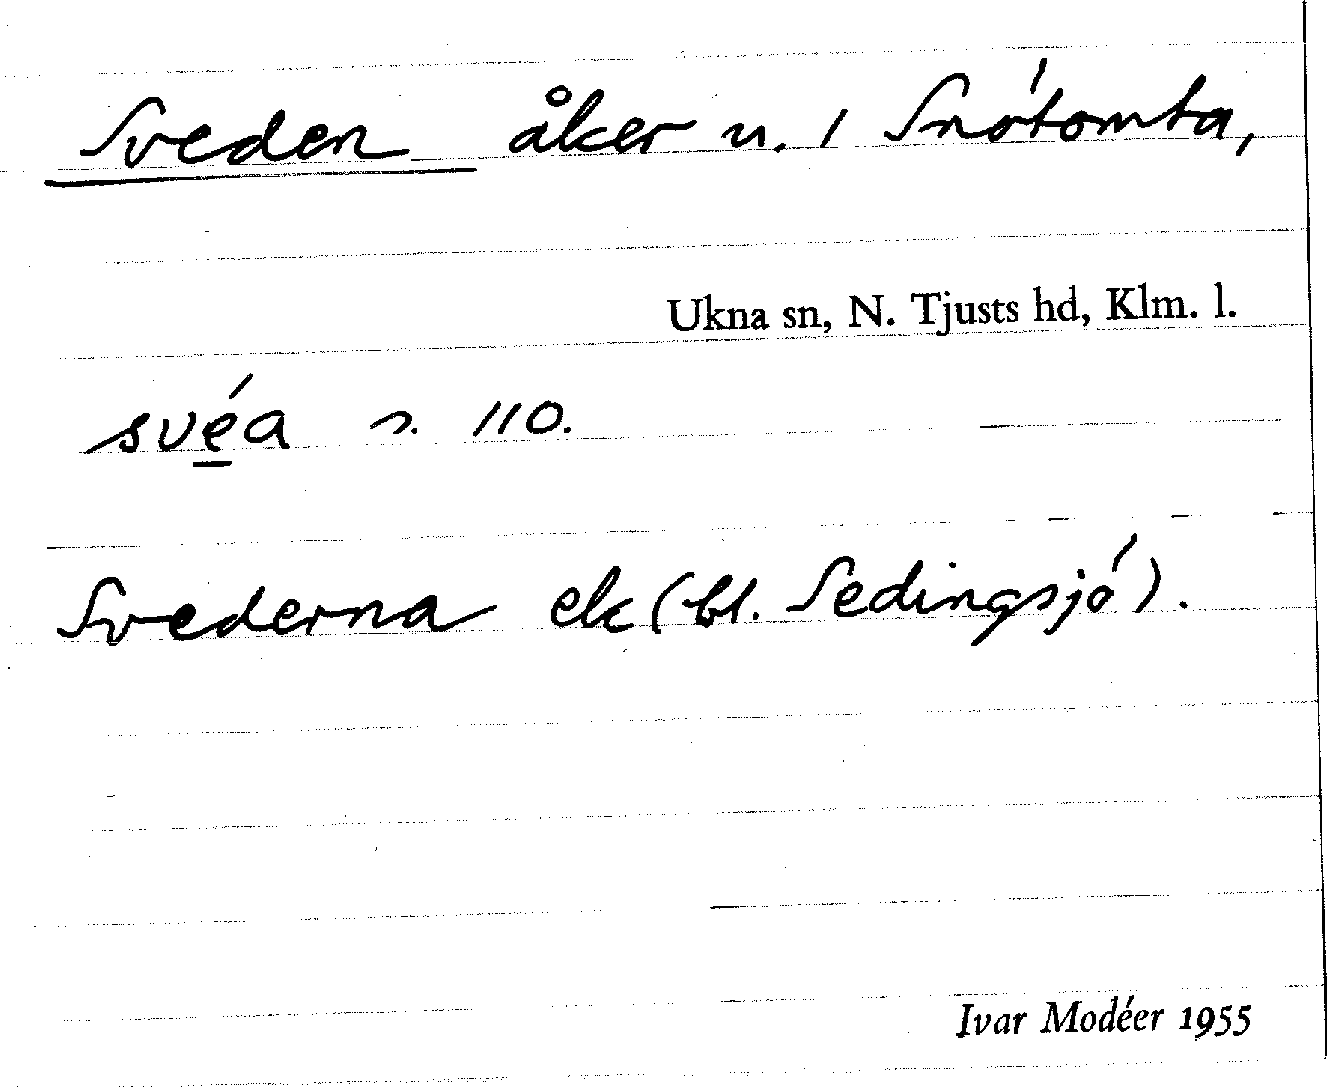 Sveden åker u. / Snótomta,
Ukna sn, N. Tjusts hd, Klm. l.
svéa s. 110.
Svederna ek (bl. Sedingsjó).
Ivar Modéer 1955